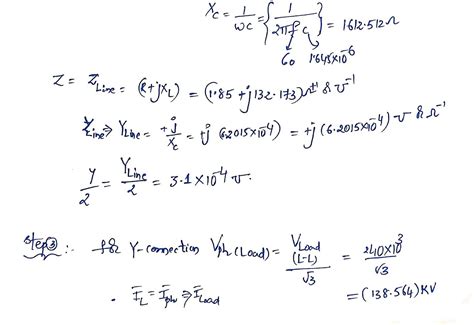 X_C = 1/ωC = {1/2πfC} = 1612.512 Ω
60 1.645×10^-6
Z = Z_Line = (R+jX_L) = (1.85 + j132.173) Ω & ℧^-1
Y_Line ⇒ Y_Line = +j/X_C = +j (6.2015×10^-4) = +j (6.2015×10^-4) ℧ & Ω^-1
Y/2 = Y_Line/2 = 3.1×10^-4 ℧.
Step③ :- for Y-connection V_ph(Load) = V_Load (L-L)/√3 = 240×10^3/√3
• I_L = I_ph ⇒ I_Load = (138.564) KV